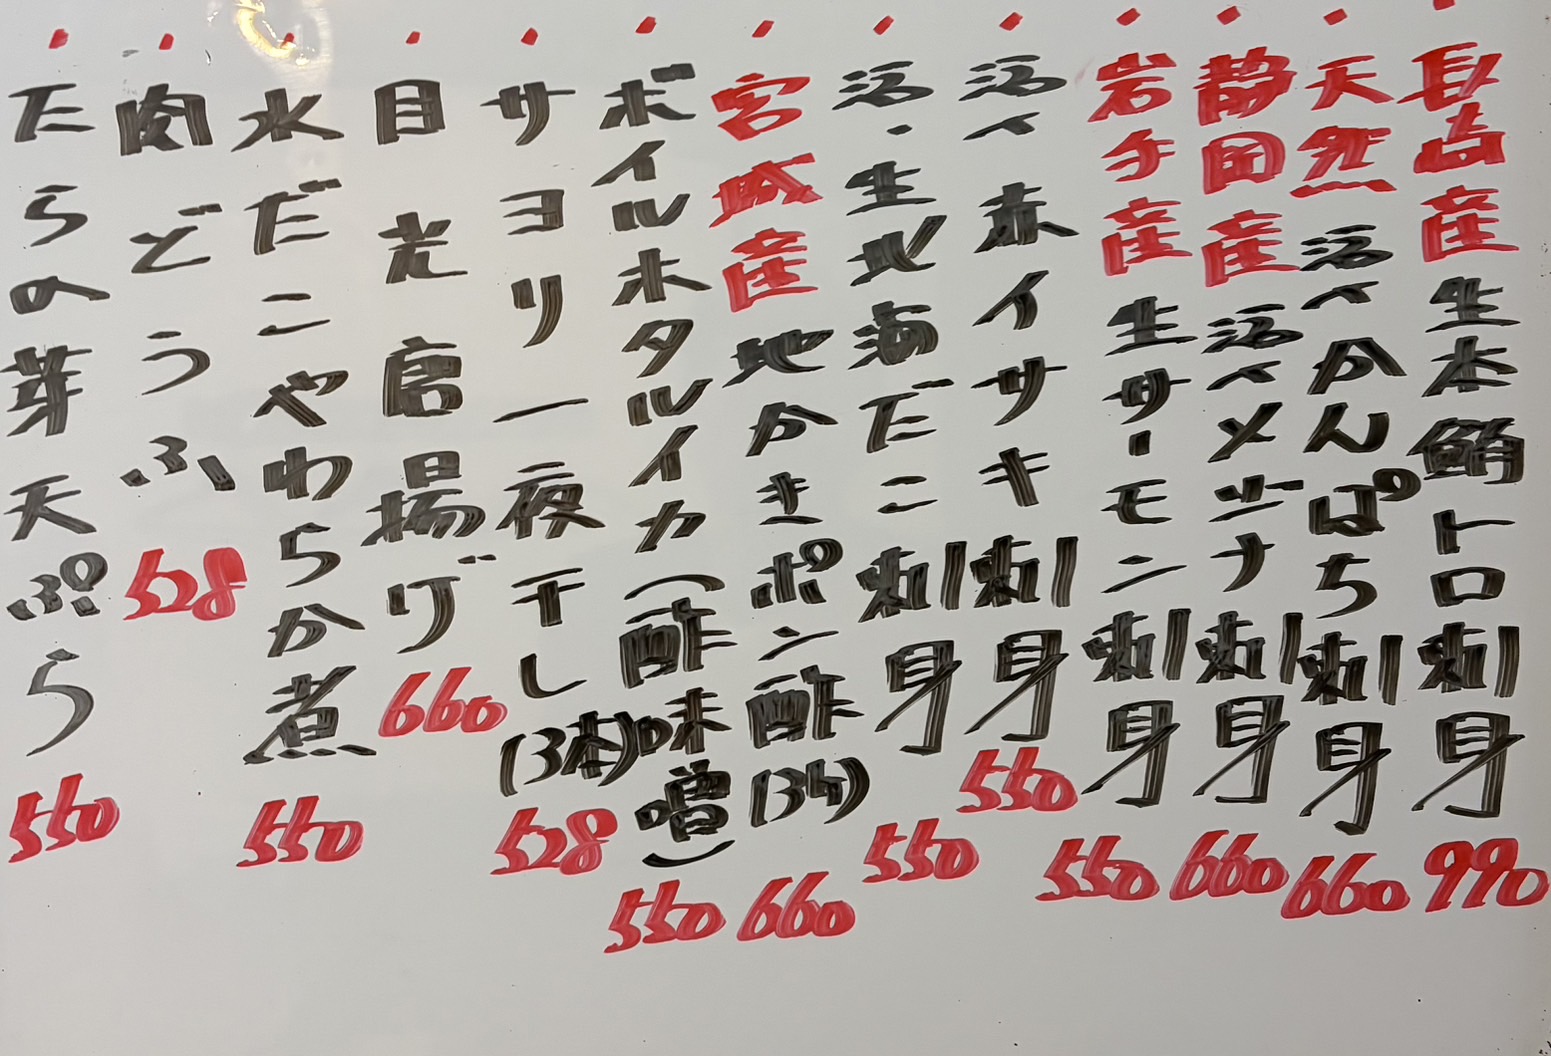 ・長崎産生本鮪トロ刺身 990
・天然活〆かんぱち刺身 660
・静岡産活〆メジナ刺身 660
・岩手産生サーモン刺身 550
・活〆赤イサキ刺身 550
・活・生地海だこ刺身 550
・宮城産地かきポン酢(3ケ) 660
・ボイルホタルイカ(酢味噌) 550
・サヨリ一夜干し(3本) 528
・目光唐揚げ 660
・水だこやわらか煮 550
・肉どうふ 528
・たらの芽天ぷら 550